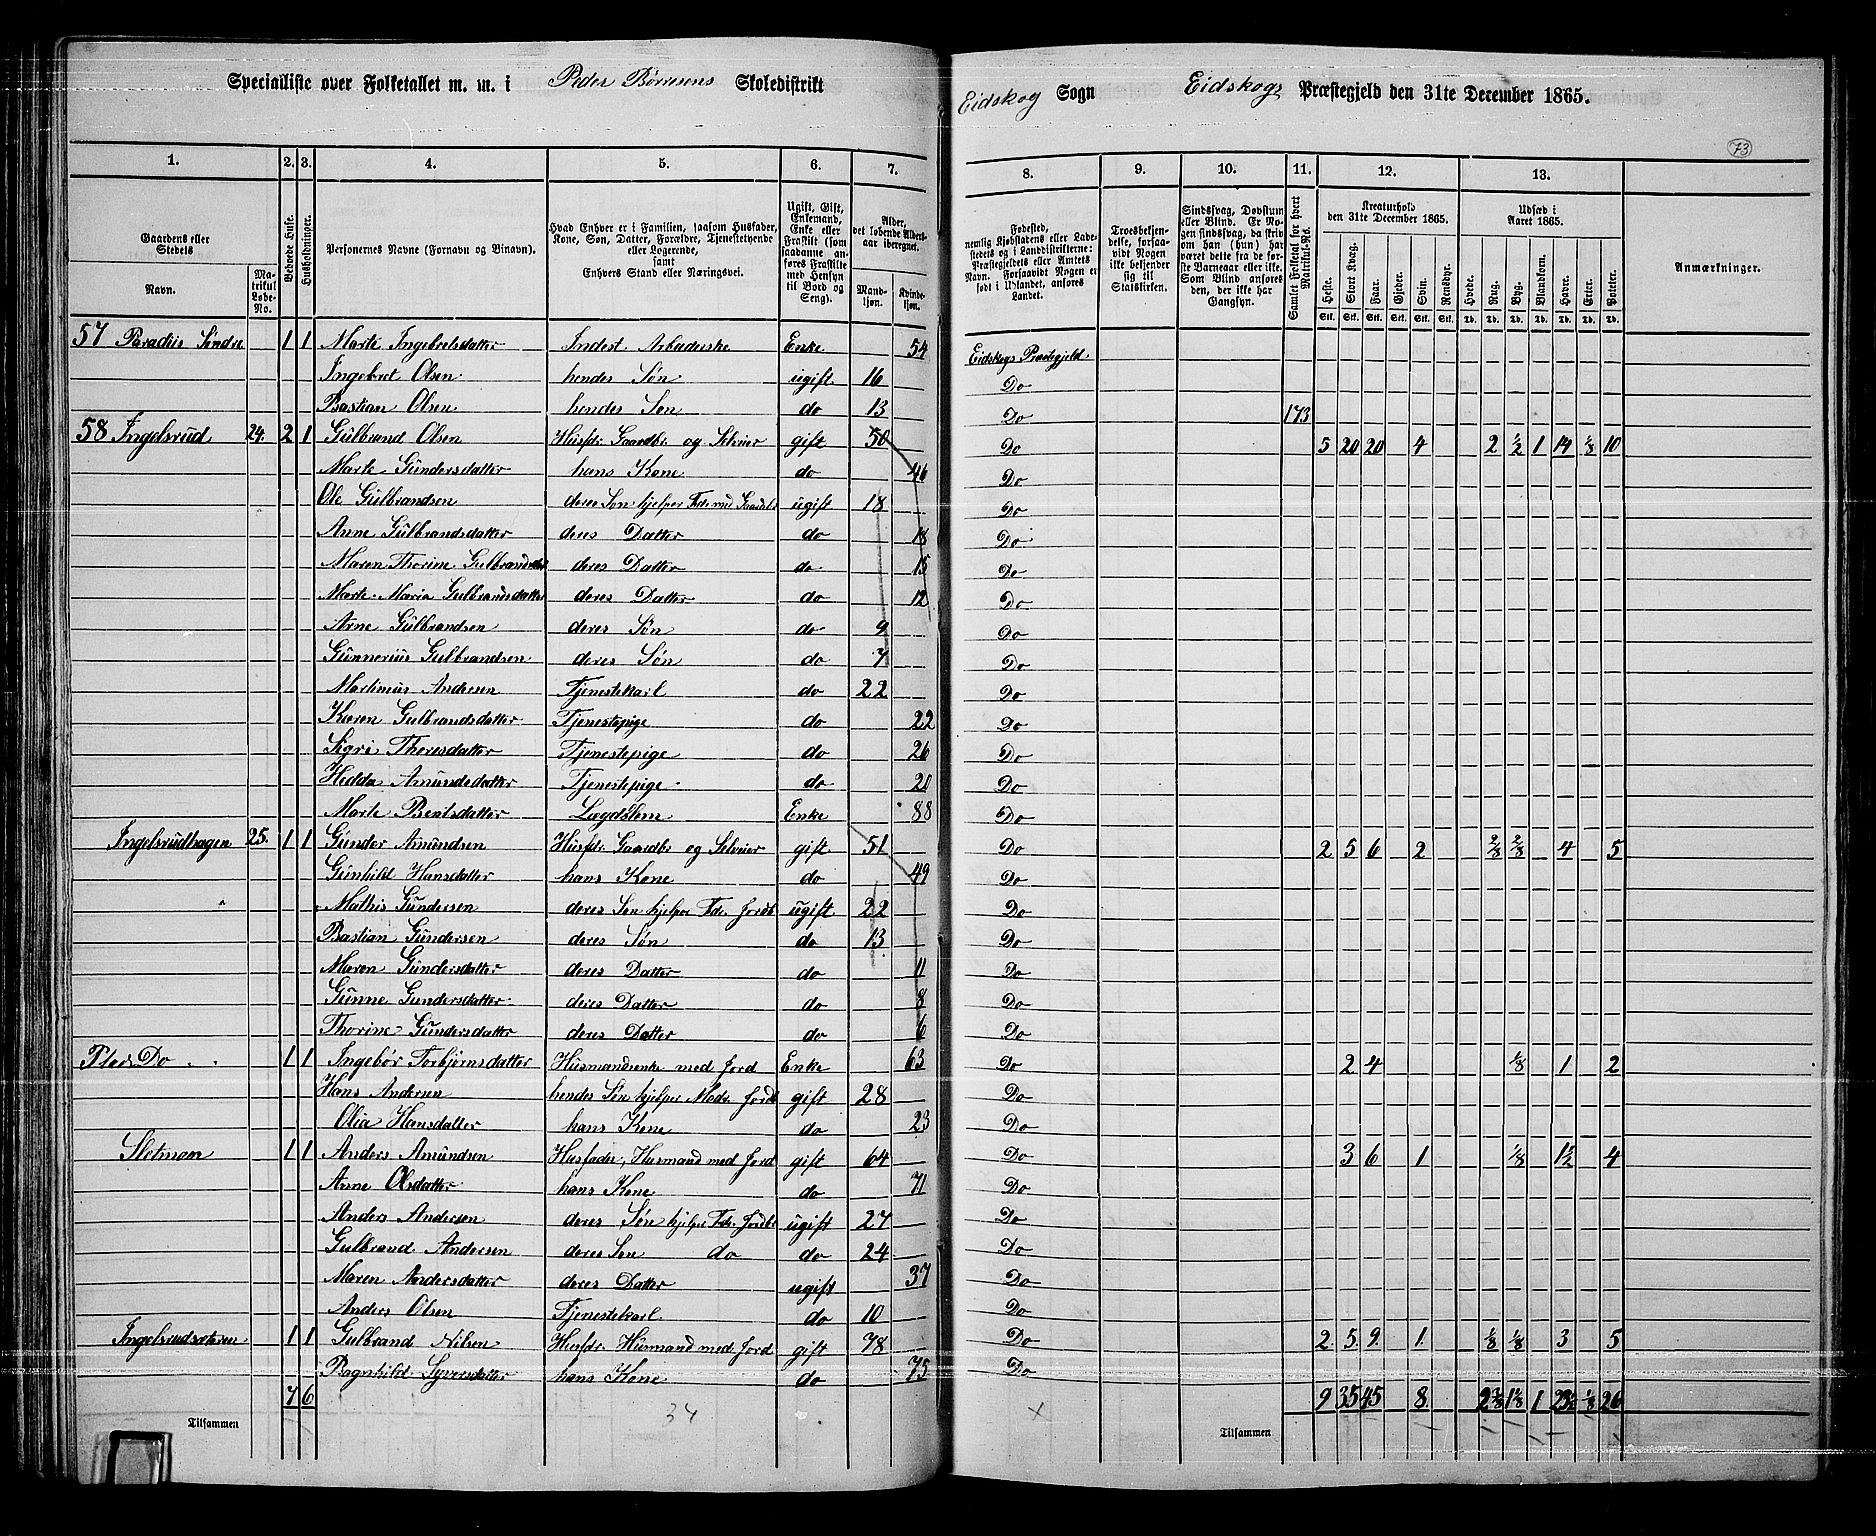 Specialliste over Folketallet m. m. i Peder Børresens Skoledistrikt
Eidskog Sogn Eidskogs Præstegjeld den 31te December 1865.
73
1. 2. 3. 4. 5. 6. 7. 8. 9. 10. 11. 12. 13.
Gaardens eller Stedets
Navn.
Matrikul Løbe-No.
Beboede Huse.
Husholdninger.
Personernes Navne (Fornavn og Binavn).
Hvad Enhver er i Familien, saasom Husfader, Kone, Søn, Datter, Forældre, Tjenestetyende eller Logerende, samt Enhvers Stand eller Næringsvei.
Ugift, Gift, Enkemand, Enke eller Fraskilt (som saadanne anføres Fraskilte med Hensyn til Bord og Seng).
Alder, det løbende Aldersaar iberegnet.
Mandkjøn. Kvindekjøn.
Fødested, nemlig Kjøbstadens eller Ladestedets og i Landdistrikterne: Præstegjeldets eller Amtets Navn. Forsaavidt Nogen er født i Udlandet, anføres Landet.
Troesbekjendelse, forsaavidt Nogen ikke bekjender sig til Statskirken.
Sindssvag, Døvstum eller Blind. Er Nogen sindssvag, da skrives om han (hun) har været dette fra de første Barneaar eller ikke. Som Blind anføres den, der ikke har Gangsyn.
Samlet Folketal for hvert Matrikul-No.
Kreaturhold den 31te December 1865.
Heste. Stort Kvæg. Faar. Gjeder. Svin. Rensdyr.
Udsæd i Aaret 1865.
Hvede. Rug. Byg. Blandkorn. Havre. Erter. Poteter.
Anmærkninger.
57 Paradiis Søndre 1 1 Marte Ingebretsdatter Inderst Arbeiderske Enke 54 Eidskogs Præstegjeld
Ingebret Olsen hendes Søn ugift 16 Do
Bastian Olsen hendes Søn do 13 Do 173
58 Ingelsrud 24. 2 1 Gulbrand Olsen Husfdr. Gaardbr. og Selveier gift 50 Do 5 20 20 4 2 1/2 1 14 1/8 10
Marte Gundersdatter hans Kone do 46 Do
Ole Gulbrandsen deres Søn hjelper Fdr. med Gaardbr. ugift 18 Do
Anne Gulbrandsdatter deres Datter do 18 Do
Maren Thorine Gulbrandsdtter deres Datter do 15 Do
Marte Maria Gulbrandsdatter deres Datter do 12 Do
Arne Gulbrandsen deres Søn do 9 Do
Gunnerius Gulbrandsen deres Søn do 7 Do
Martinius Andersen Tjenestekarl do 22 Do
Karen Gulbrandsdatter Tjenestepige do 22 Do
Sigri Thoresdatter Tjenestepige do 26 Do
Hedda Amundsdatter Tjenestepige do 20 Do
Marte Bentsdatter Lægdslem Enke 88 Do
Ingelsrudhagen 25. 1 1 Gunder Amundsen Husfdr. Gaardbr. og Selveier gift 51 Do 2 5 6 2 2/8 2/8 4 5
Gunhild Hansdatter hans Kone do 49 Do
Mathis Gundersen deres Søn hjelper Fdr. Jordb ugift 22 Do
Bastian Gundersen deres Søn do 13 Do
Maren Gundersdatter deres Datter do 11 Do
Gunne Gundersdatter deres Datter do 8 Do
Thorine Gundersdatter deres Datter do 6 Do
Plads Do 1 1 Ingebør Torbjørnsdatter Husmandsenke med Jord Enke 63 Do 2 4 1/8 1 2
Hans Andersen hendes Søn hjelper Modr. Jordb gift 28 Do
Olia Hansdatter hans Kone do 23 Do
Sletmoen 1 1 Anders Amundsen Husfader, Husmand med Jord gift 64 Do 3 6 1 1/8 1 1/2 4
Anne Olsdatter hans Kone do 71 Do
Anders Andersen deres Søn hjelper Fdr. Jordbr ugift 27 Do
Gulbrand Andersen deres Søn do do 24 Do
Maren Andersdatter deres Datter ugift 37 Do
Anders Olsen Tjenestekarl do 10 Do
Ingelsrudsæteren 1 1 Gulbrand Nilsen Husfdr. Husmand med Jord gift 78 Do 2 5 9 1 1/8 1/8 3 5
Ragnhild Syversdatter hans Kone do 75 Do
7 6 9 35 45 8 2 3/8 1 1/8 1 23 1/2 1/8 26
34 x
Tilsammen Tilsammen